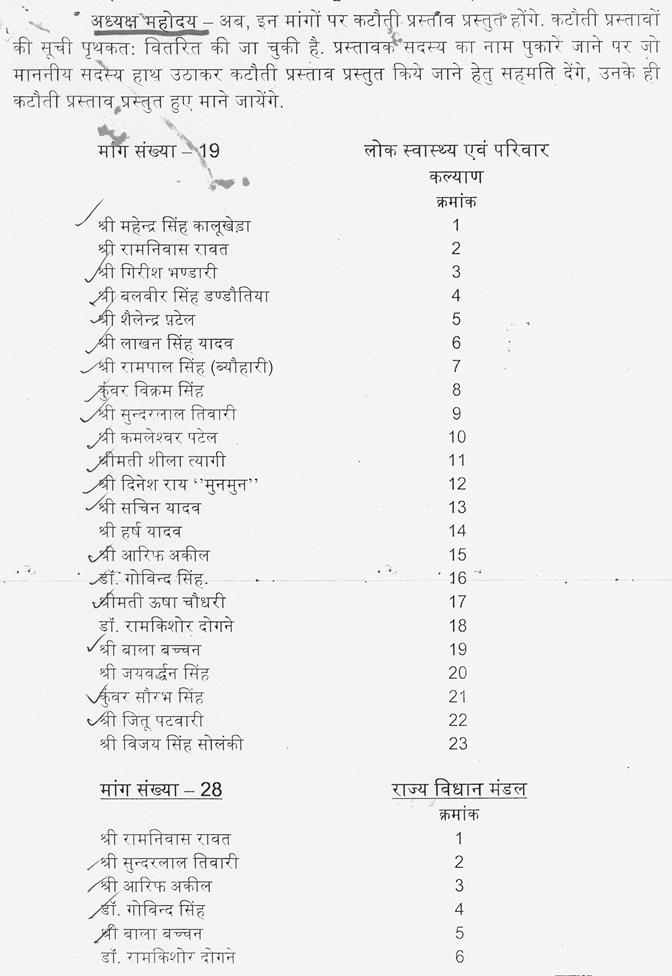 अध्यक्ष महोदय – अब, इन मांगों पर कटौती प्रस्ताव प्रस्तुत होंगे. कटौती प्रस्तावों
की सूची पृथकत: वितरित की जा चुकी है. प्रस्तावक सदस्य का नाम पुकारे जाने पर जो
माननीय सदस्य हाथ उठाकर कटौती प्रस्ताव प्रस्तुत किये जाने हेतु सहमति देंगे, उनके ही
कटौती प्रस्ताव प्रस्तुत हुए माने जायेंगे.
मांग संख्या – 19 लोक स्वास्थ्य एवं परिवार
कल्याण
क्रमांक
श्री महेन्द्र सिंह कालूखेड़ा 1
श्री रामनिवास रावत 2
श्री गिरीश भण्डारी 3
श्री बलवीर सिंह डण्डौतिया 4
श्री शैलेन्द्र पटेल 5
श्री लाखन सिंह यादव 6
श्री रामपाल सिंह (ब्यौहारी) 7
कुंवर विक्रम सिंह 8
श्री सुन्दरलाल तिवारी 9
श्री कमलेश्वर पटेल 10
श्रीमती शीला त्यागी 11
श्री दिनेश राय ‘‘मुनमुन’’ 12
श्री सचिन यादव 13
श्री हर्ष यादव 14
श्री आरिफ अकील 15
डॉ. गोविन्द सिंह. 16
श्रीमती ऊषा चौधरी 17
डॉ. रामकिशोर दोगने 18
श्री बाला बच्चन 19
श्री जयवर्द्धन सिंह 20
कुंवर सौरभ सिंह 21
श्री जितू पटवारी 22
श्री विजय सिंह सोलंकी 23
मांग संख्या – 28 राज्य विधान मंडल
क्रमांक
श्री रामनिवास रावत 1
श्री सुन्दरलाल तिवारी 2
श्री आरिफ अकील 3
डॉ. गोविन्द सिंह 4
श्री बाला बच्चन 5
डॉ. रामकिशोर दोगने 6